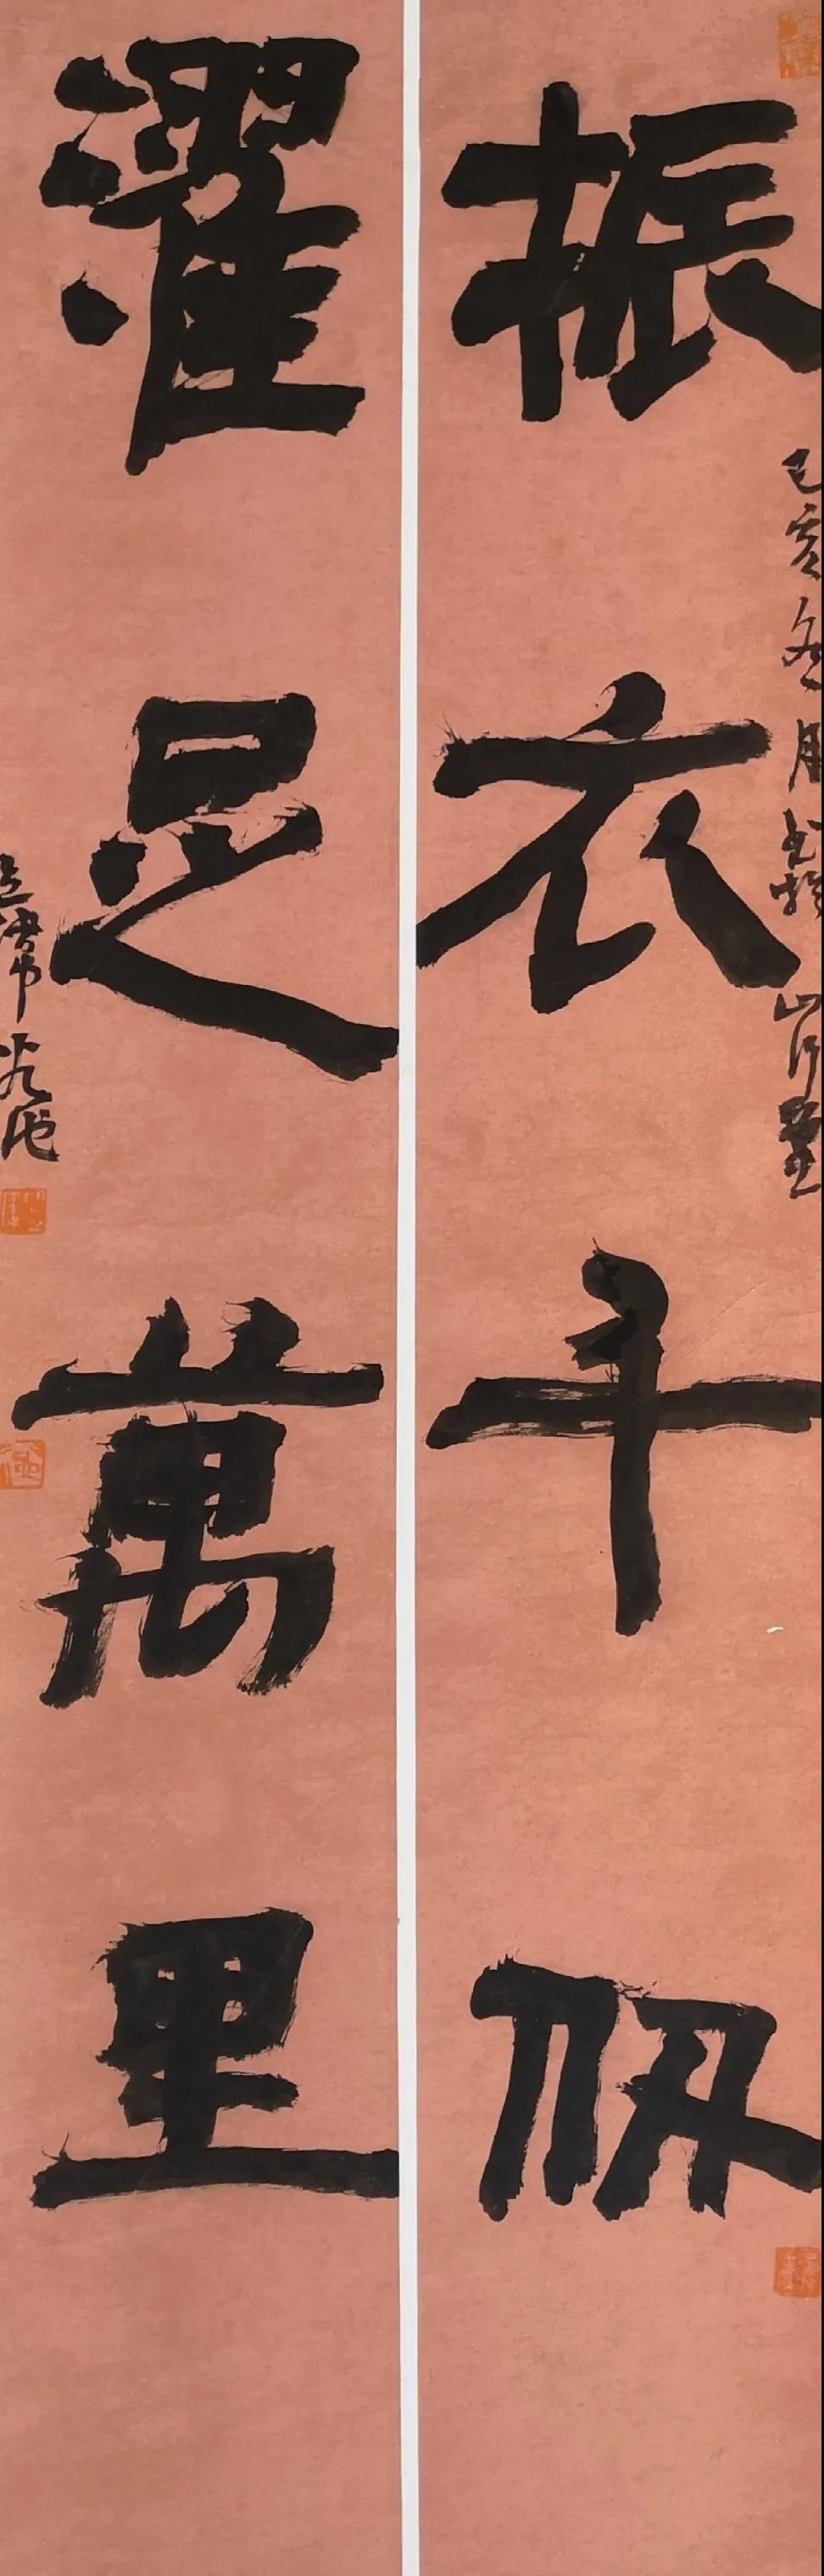 振衣千仞
己亥冬月书于 山
濯足萬里